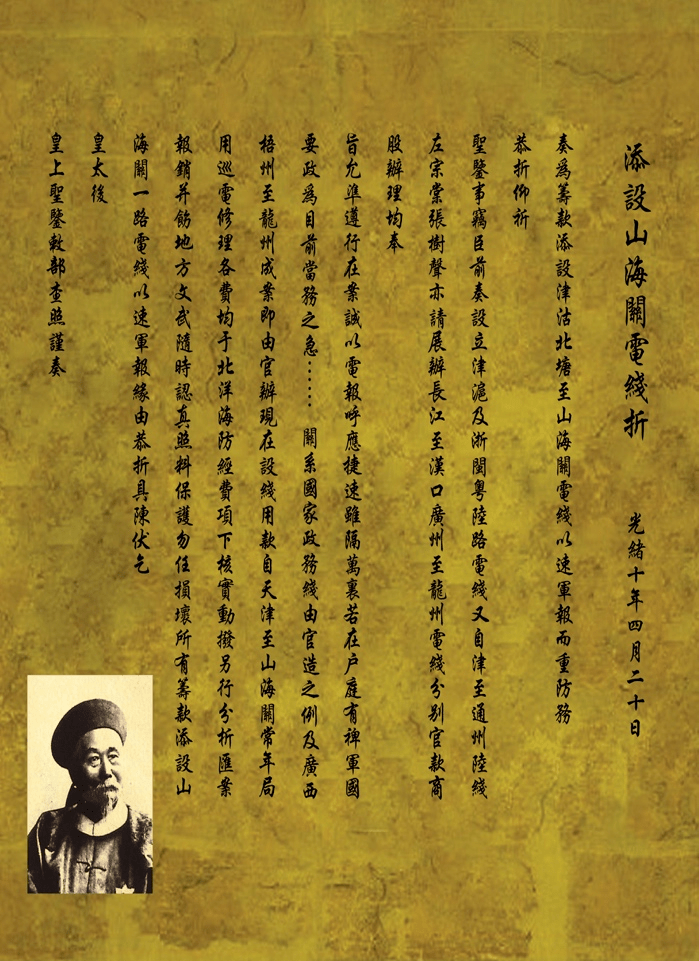 添設山海關電綫折 光緒十年四月二十日
奏爲籌款添設津沽北塘至山海關電綫以速軍報而重防務
恭折仰祈
聖鑒事竊臣前奏設立津滬及浙閩粵陸路電綫又自津至通州陸綫
左宗棠張樹聲亦請展辦長江至漢口廣州至龍州電綫分別官款商
股辦理均奉
旨允準遵行在案誠以電報呼應捷速雖隔萬裏若在户庭有裨軍國
要政爲目前當務之急……關系國家政務綫由官造之例及廣西
梧州至龍州成案即由官辦現在設綫用款自天津至山海關常年局
用巡電修理各費均于北洋海防經費項下核實動撥另行分折匯案
報銷并飭地方文武隨時認真照料保護勿任損壞所有籌款添設山
海關一路電綫以速軍報緣由恭折具陳伏乞
皇太後
皇上聖鑒敕部查照謹奏